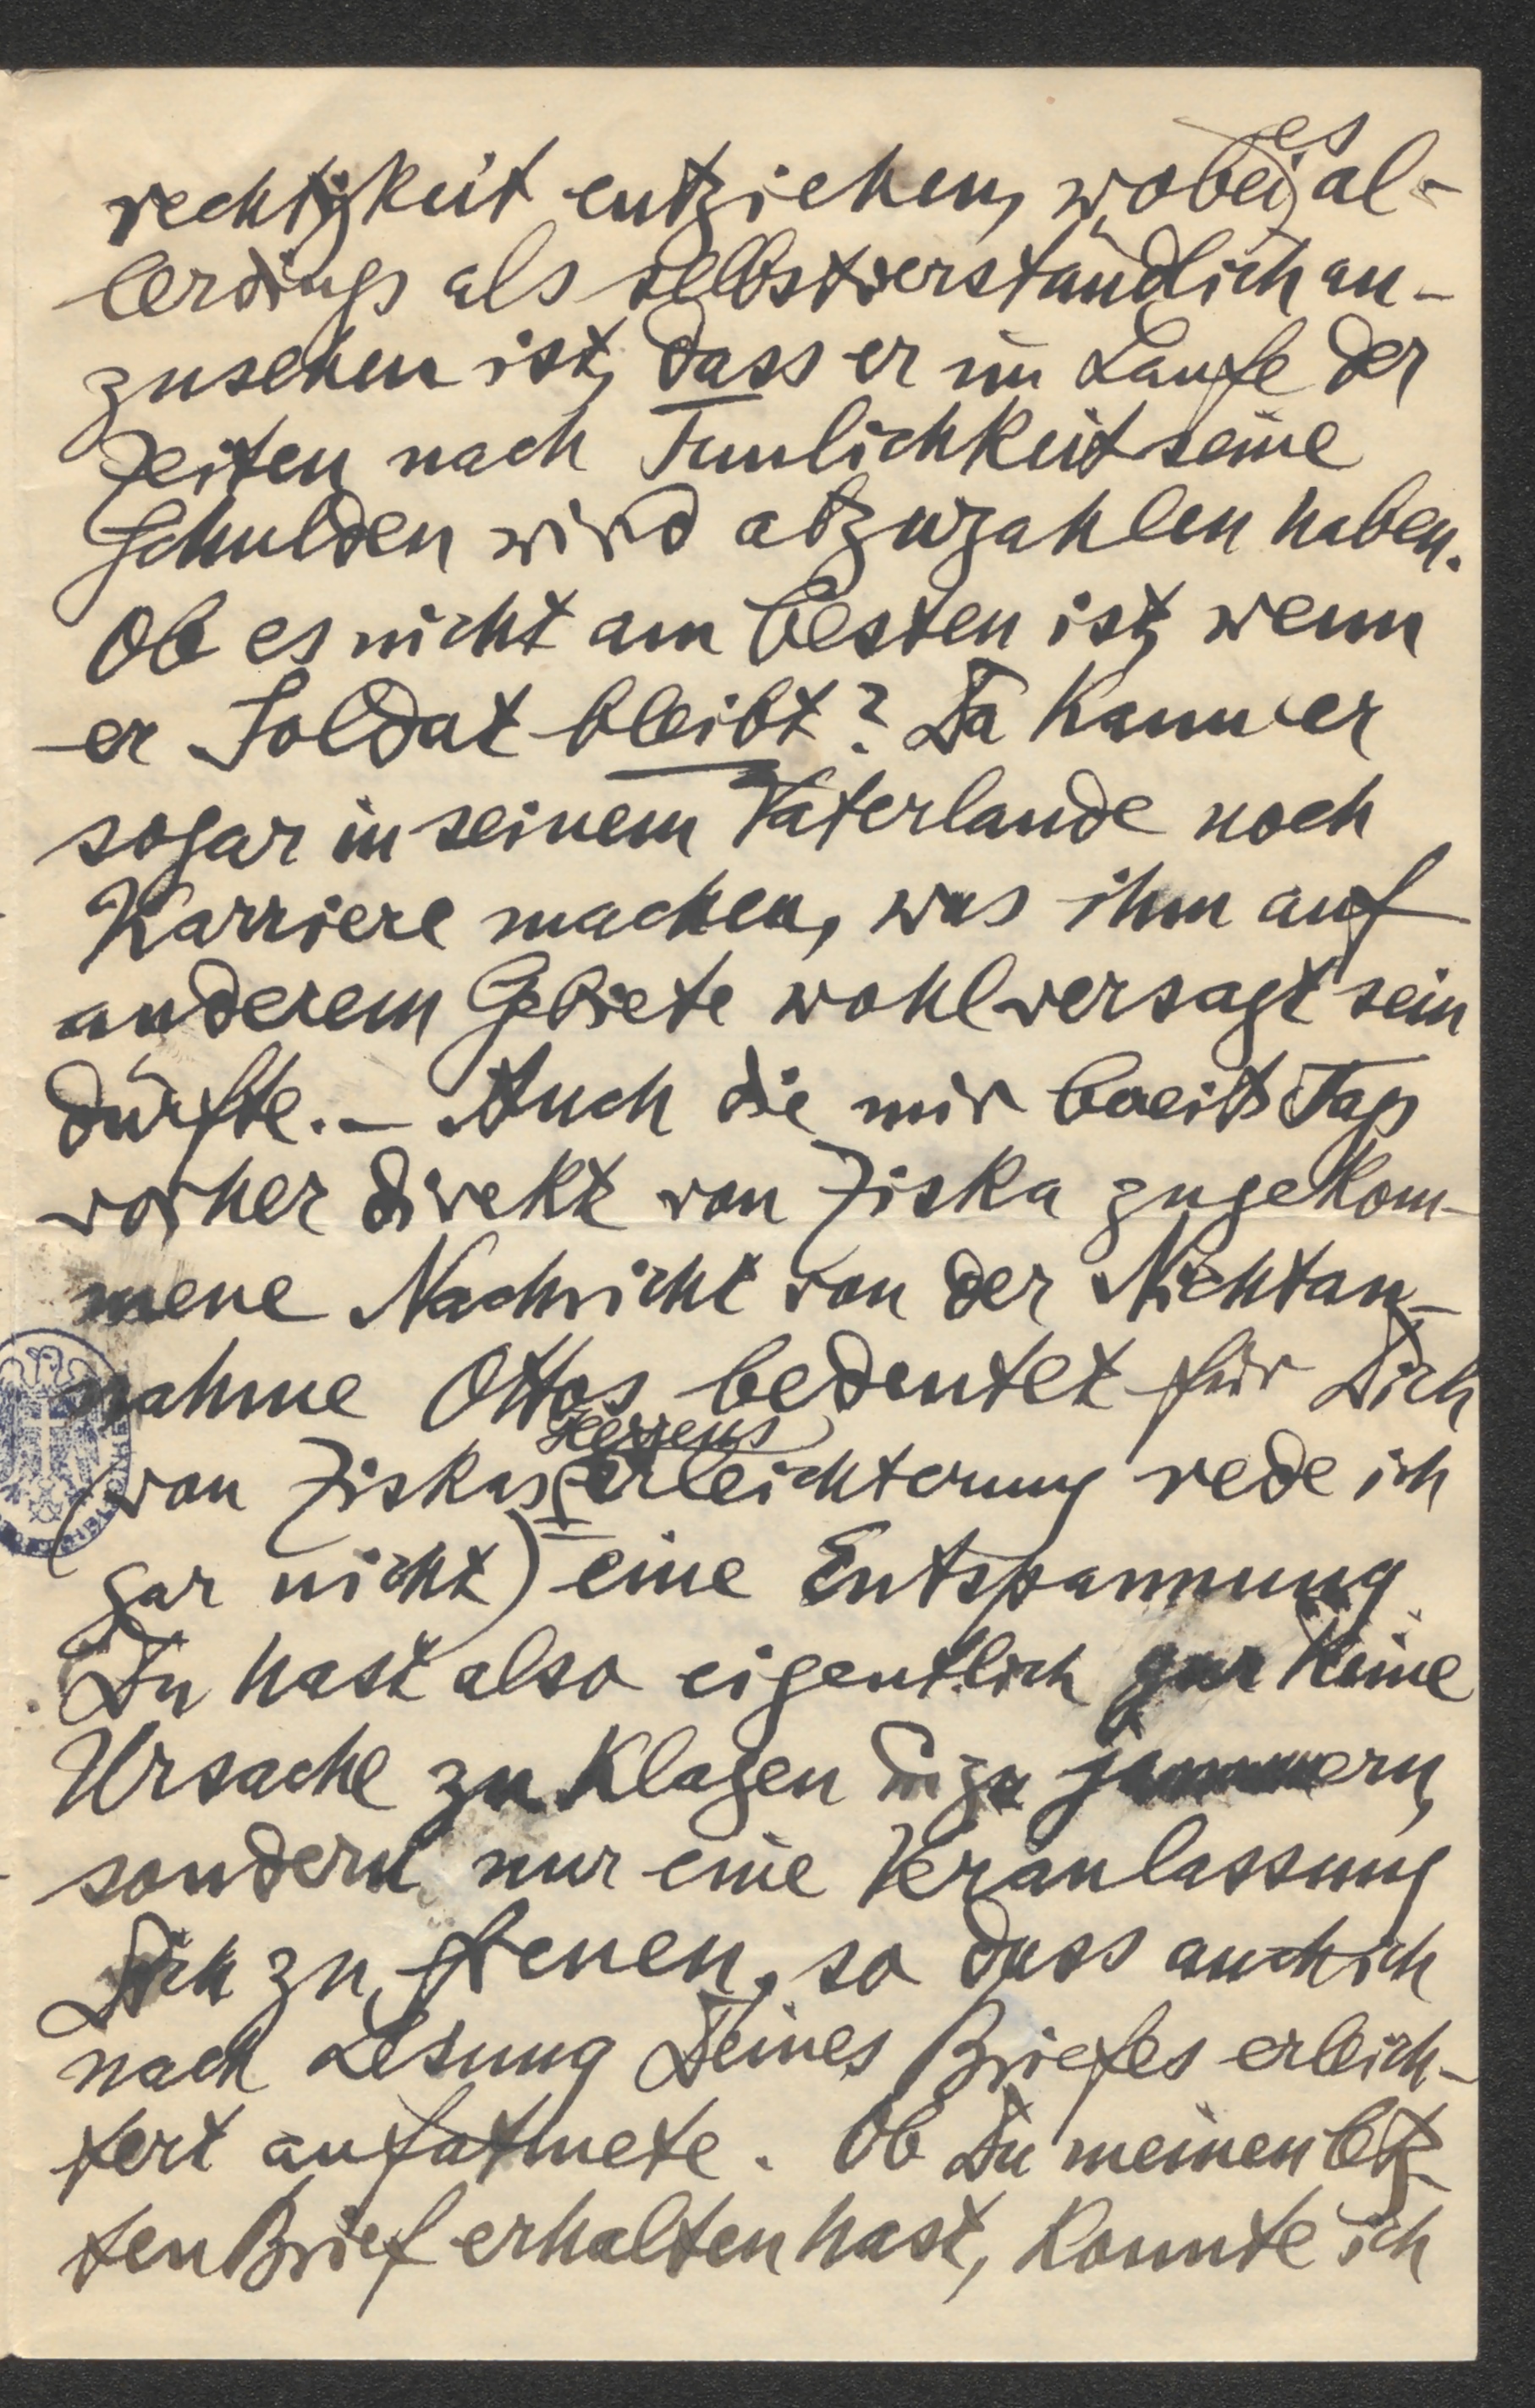 rechtigkeit entziehen, wobei es al-
lerdings als selbstverständlich an-
zusehen ist, dass er im Laufe der
Zeiten nach Tunlichkeit seine
Schulden wird abzuzahlen haben.
Ob es nicht am besten ist, wenn
er Soldat bleibt? Da kann er
sogar in seinem Vaterlande noch
Karriere machen, was ihm auf
anderem Gebiete wohl versagt sein
dürfte. – Auch die mir bereits Tags
vorher direkt von Ziska zugekom-
mene Nachricht von der Nichtan-
nahme Ottos bedeutet für Dich
(von Ziskas Herzenserleichterung rede ich
gar nicht) eine Entspannung
Du hast also eigentlich gar keine
Ursache zu klagen u. zu jammern,
sondern nur eine Veranlassung
Dich zu freuen, so dass auch ich
nach Lesung Deines Briefes erleich-
tert aufatmete. Ob Du meinen letz-
ten Brief erhalten hast, konnte ich